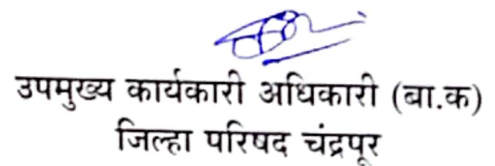 उपमुख्य कार्यकारी अधिकारी (बा.क)
जिल्हा परिषद चंद्रपूर